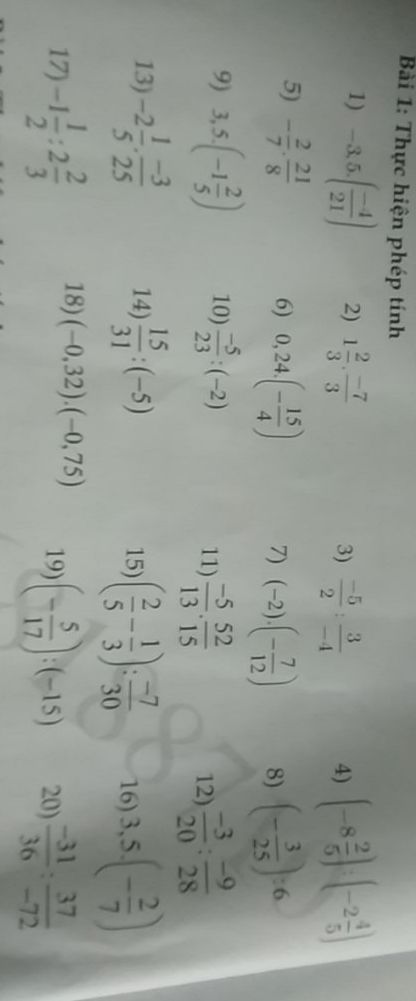 Bài 1: Thực hiện phép tính
1) -3,5.(-4/21) 2) 1 2/3 . -7/3 3) -5/2 : 3/-4 4) (-8 2/5) : (-2 4/5)
5) -2/7 . 21/8 6) 0,24.(-15/4) 7) (-2).(-7/12) 8) (-3/25) : 6
9) 3,5.(-1 2/5) 10) -5/23 : (-2) 11) -5/13 . 52/15 12) -3/20 : -9/28
13) -2 1/5 . -3/25 14) 15/31 : (-5) 15) (2/5 - 1/3) : -7/30 16) 3,5.(-2/7)
17) -1 1/2 : 2 2/3 18) (-0,32).(-0,75) 19) (-5/17) : (-15) 20) -31/36 : 37/-72